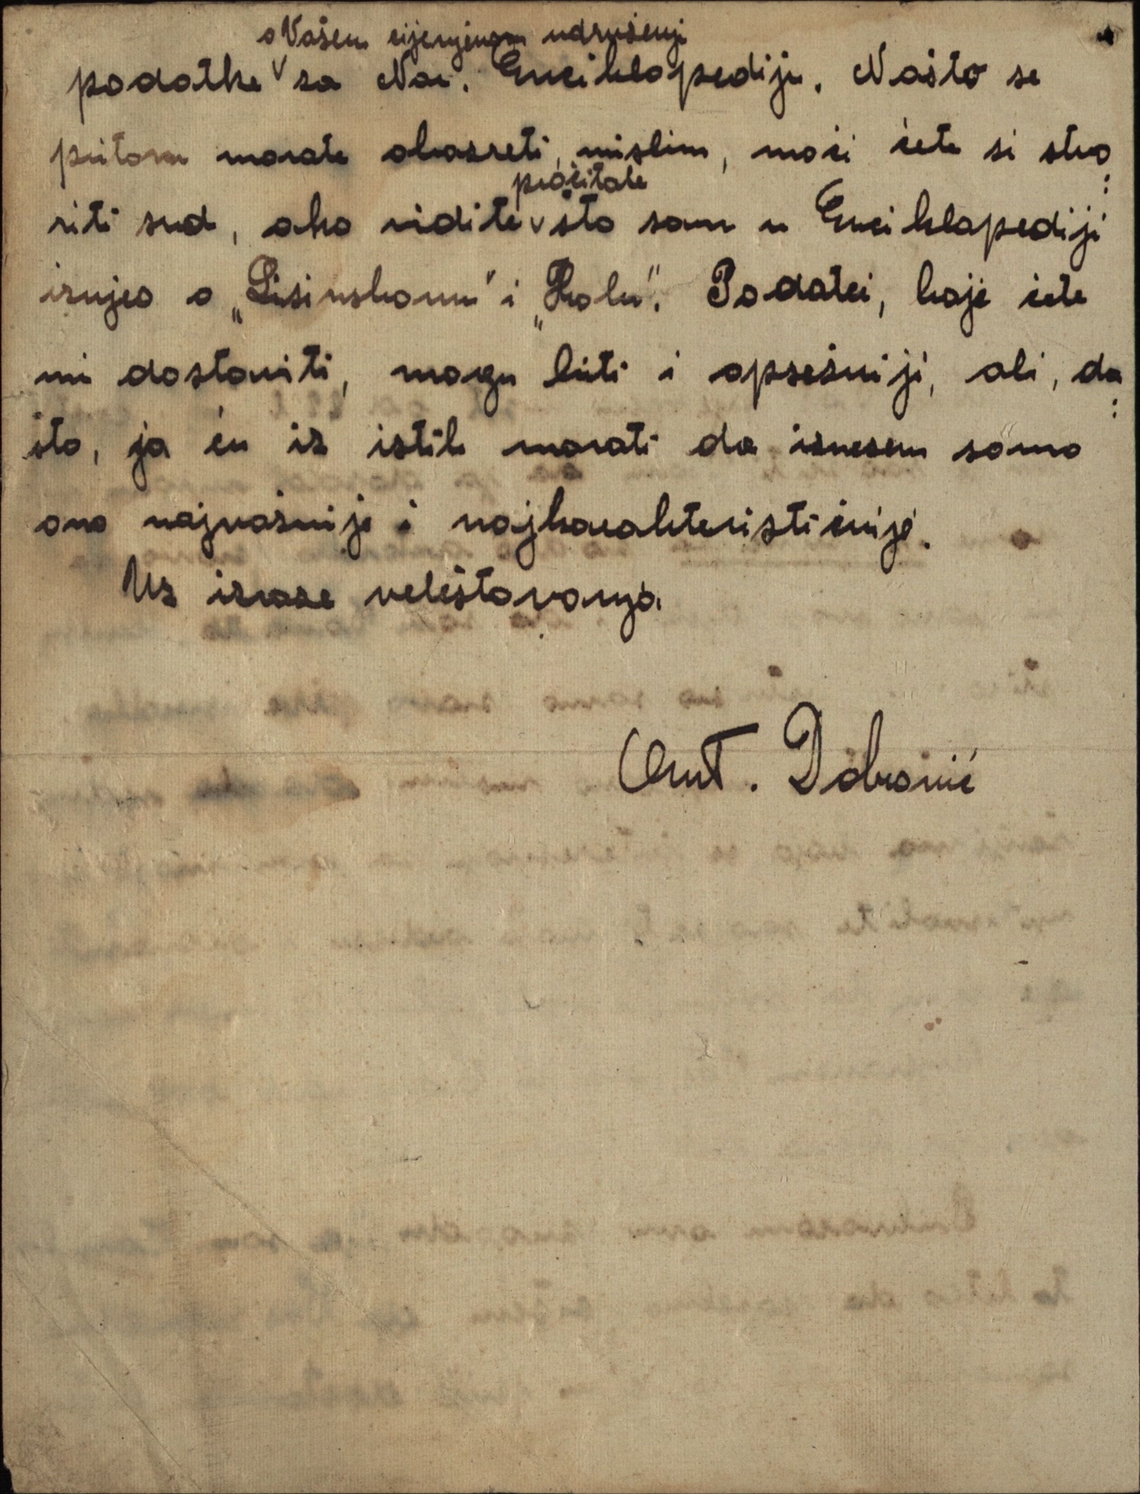 o Vašem cijenjenom udruženju
podatke ˅ za Nar. Enciklopediju. Našto se
pritom morate obazreti, mislim, moći ćete si stvo:
pročitate
riti sud, ako vidite ˅ što sam u Enciklopediji
iznjeo o „Lisinskomu" i „Kolu". Podatci, koje ćete
mi dostaviti, mogu biti i opsežniji, ali, da:
što, ja ću iz istih morati da iznesem samo
ono najvažnije i najkarakterističnije.
Uz izraze veleštovanja
Ant. Dobronić